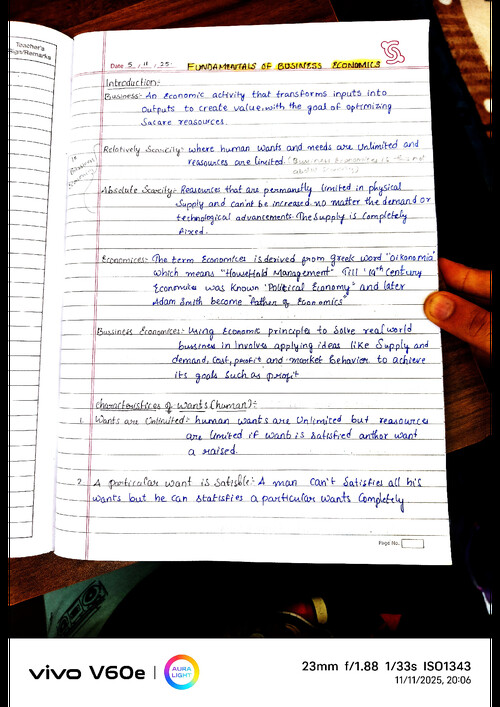 Teacher's
Sign/Remarks
Date 5, 11, 25.
FUNDAMENTALS OF BUSINESS ECONOMICS
Introduction:-
Business:- An Economic activity that transforms inputs into
outputs to create value. with the goal of optimizing
Sacare reasources.
Relatively Scarcity:- where human wants and needs are unlimited and
reasources are limited.
Absolute Scarcity:- Reasources that are permanetly limited in physical
Supply and can'nt be increased no matter the demand or
technological advancements. The Supply is completely
fixed.
Economices:- The term Economices is derived from Greek word "oikonomia"
which means "Household Management" Till '19th century
Economics was Known 'Political Economy" and later
Adam Smith become "Father of Economics"
Bussiness Economices:- Using Economic principles to Solve real world
bussiness in Involves applying ideas like Supply and
demand, Cost, profit and market Behavior to achieve
its goals Such as profit
Characteristices of Wants (human):-
1. Wants are Unlimited:- human wants are Unlimited but reasources
are limited if want is satisfied anthor want
a raised.
2. A particular want is Satisble:- A man can't Satisfies all his
wants but he can statisfies a particular wants Completely
Page No.
vivo V60e | AURA LIGHT
23mm f/1.88 1/33s ISO1343
11/11/2025, 20:06